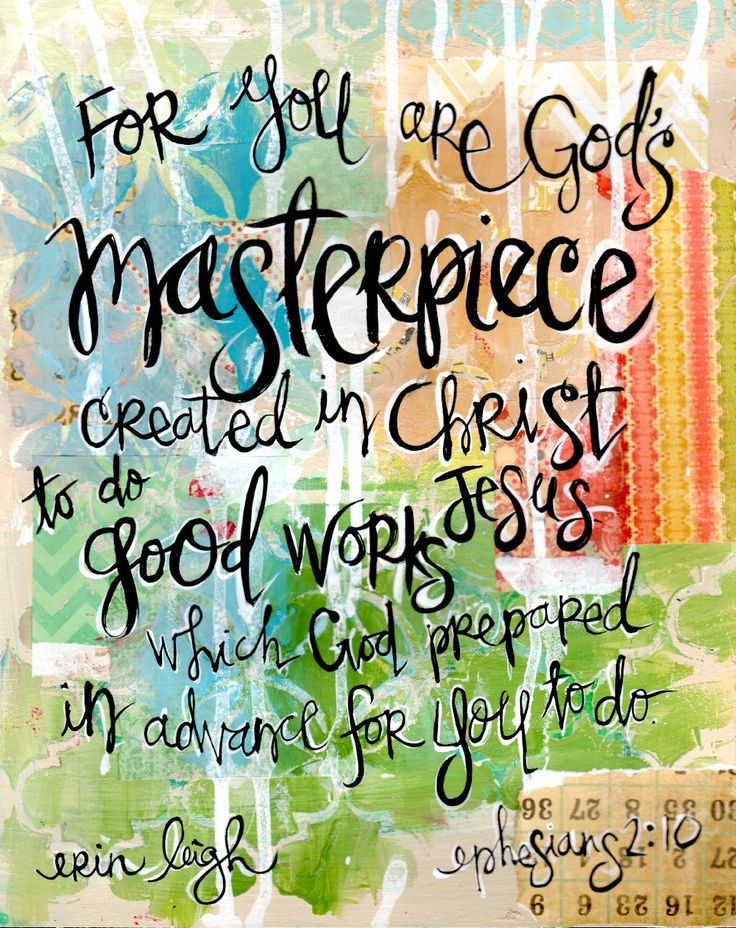 For you are God's
masterpiece
created in Christ
Jesus
to do
good works
which God prepared
in advance for you to do.
erin leigh
ephesians 2:10
36 27 8 35 30
24 18 13 2
9 6 23 16